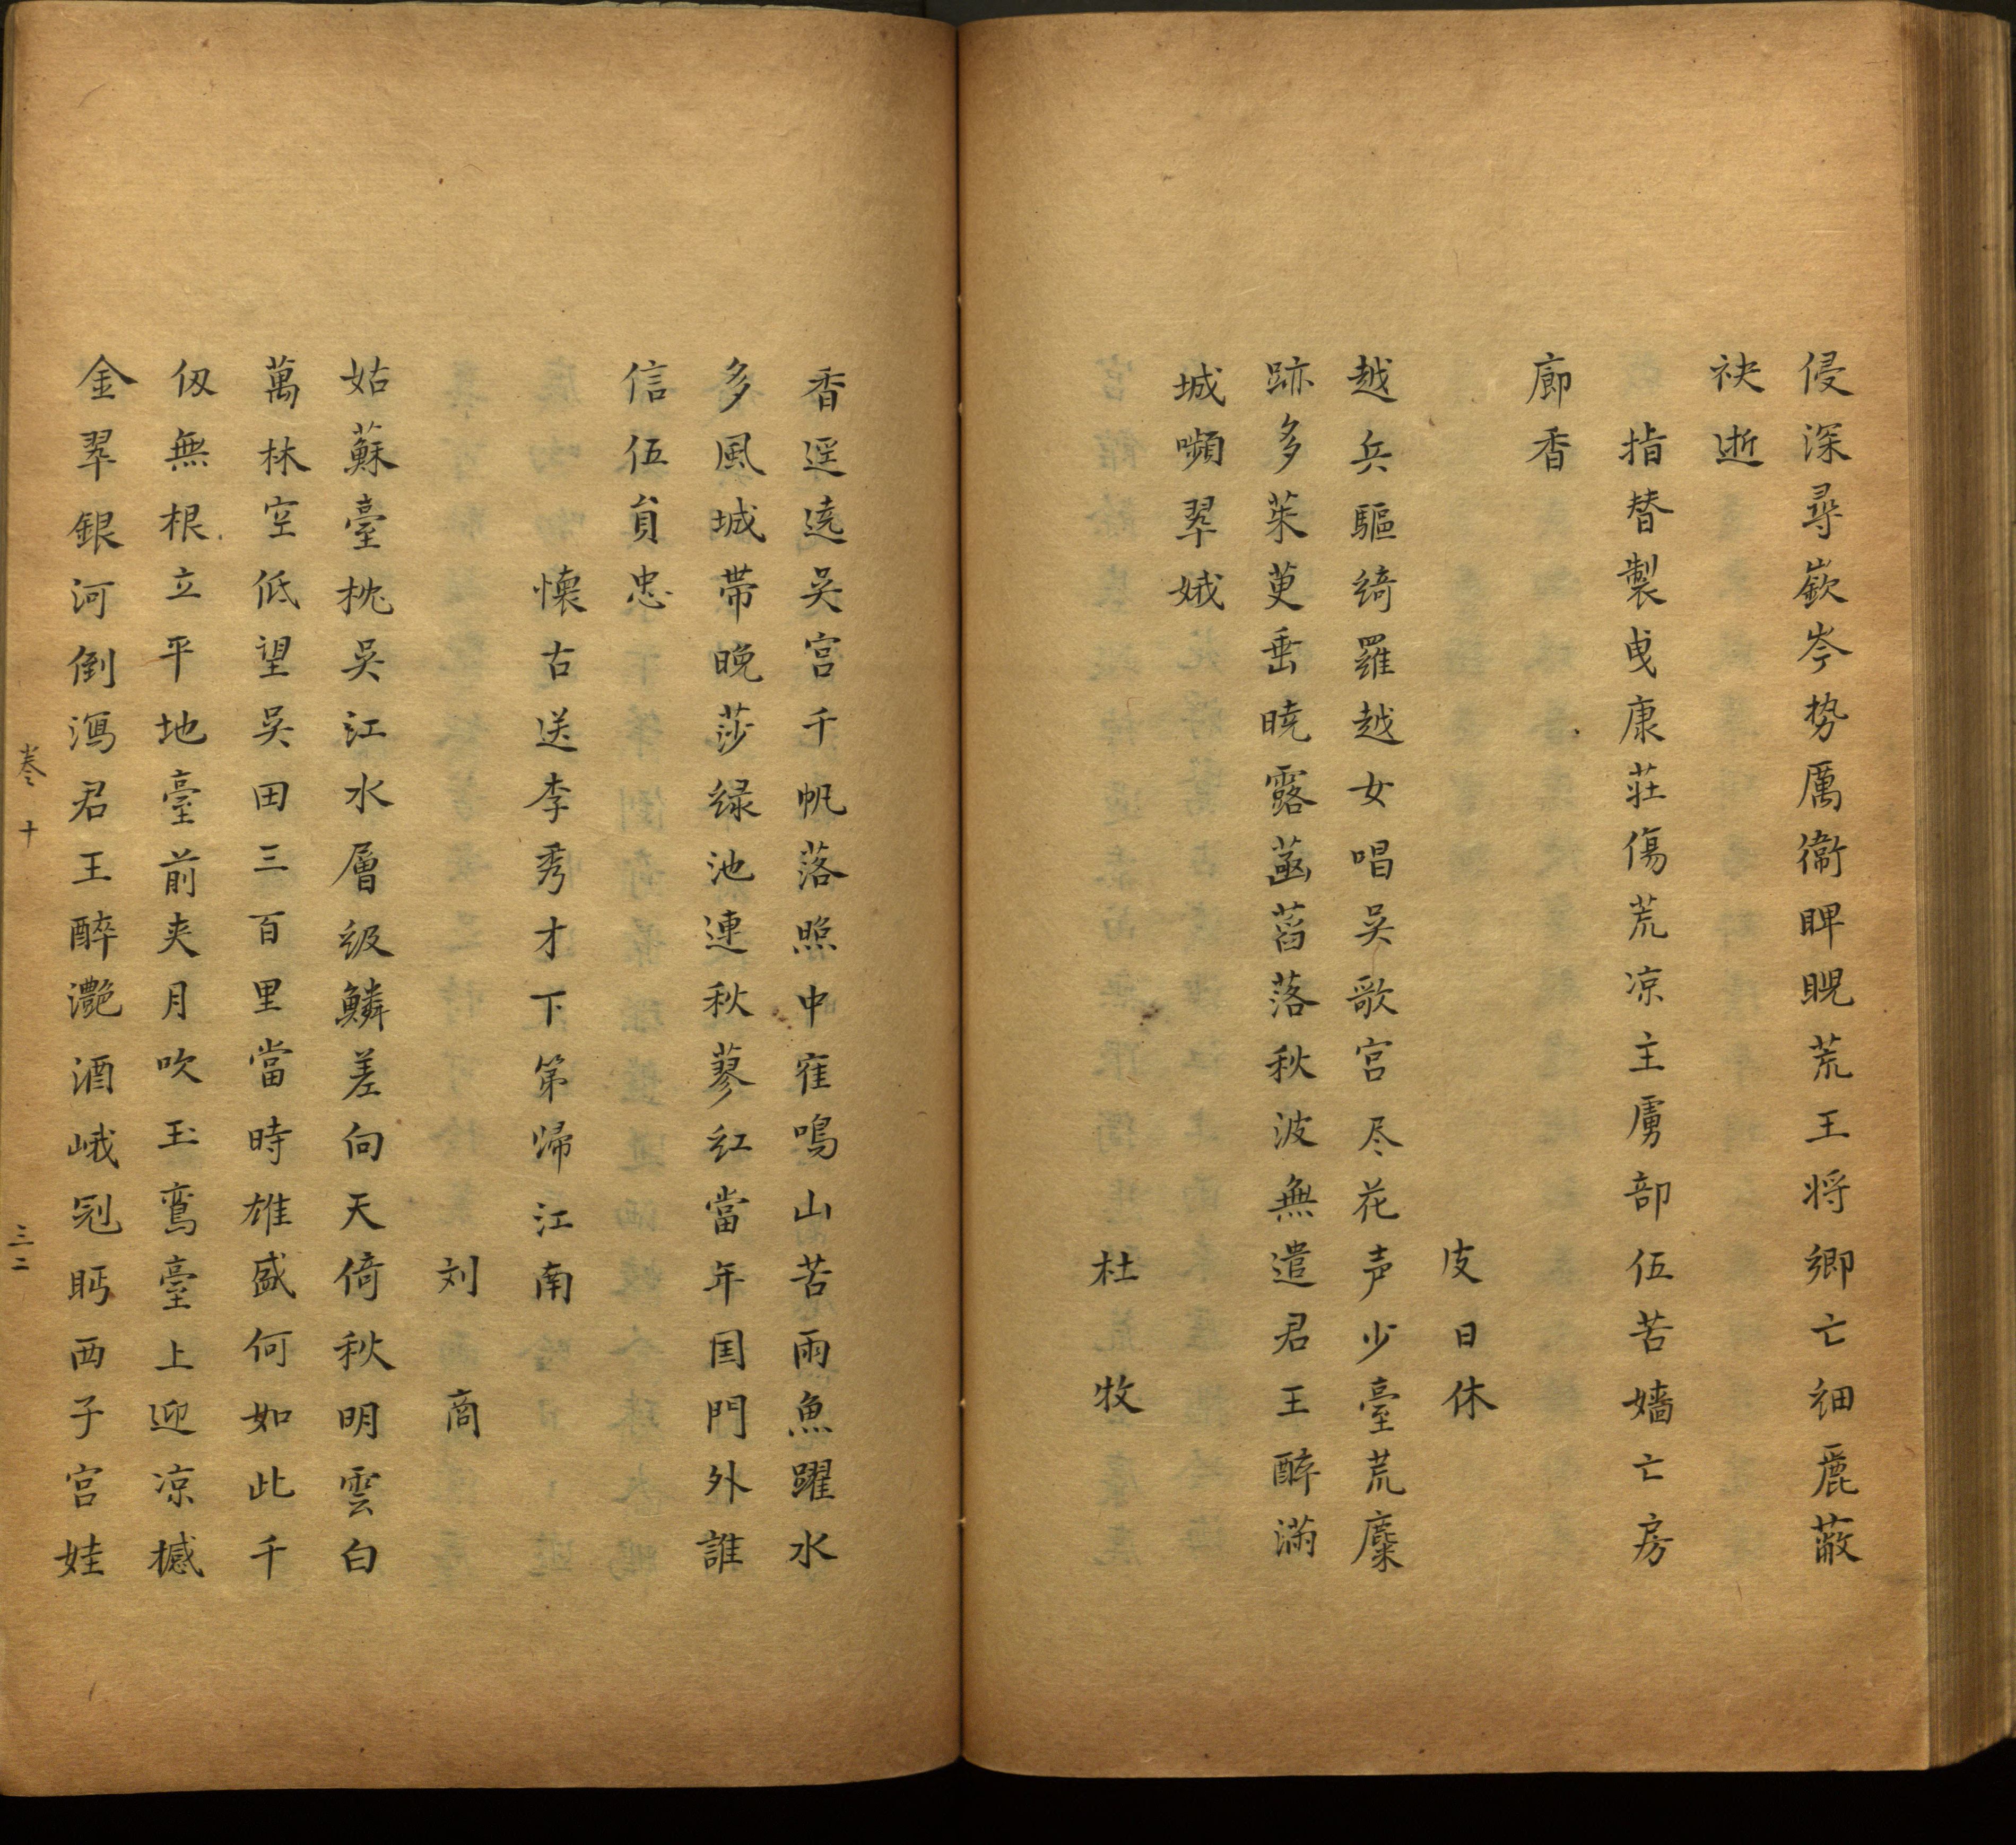 侵深尋嶔岑势厲衞睥睨荒王将鄉亡細麁蔽
袂逝
指替製曳康莊傷荒凉主虜部伍苦嬙亡房
廊香
皮日休
越兵驅绮羅越女唱吳歌宫尽花声少臺荒麋
跡多茱萸垂暁露菡萏落秋波無遣君王醉滿
城嚬翠娥
杜牧
香逕遶吳宫千帆落照中寉鳴山苦雨魚躍水
多風城带晚莎绿池連秋蓼红當年国門外誰
信伍員忠
懐古送李秀才下第帰江南
刘商
姑蘇臺枕吳江水層级鱗差向天倚秋明雲白
萬林空低望吳田三百里當時雄盛何如此千
仭無根立平地臺前夹月吹玉鸾臺上迎凉撼
金翠銀河倒瀉君王醉灔酒峨冠眄西子宫娃
卷十
三二